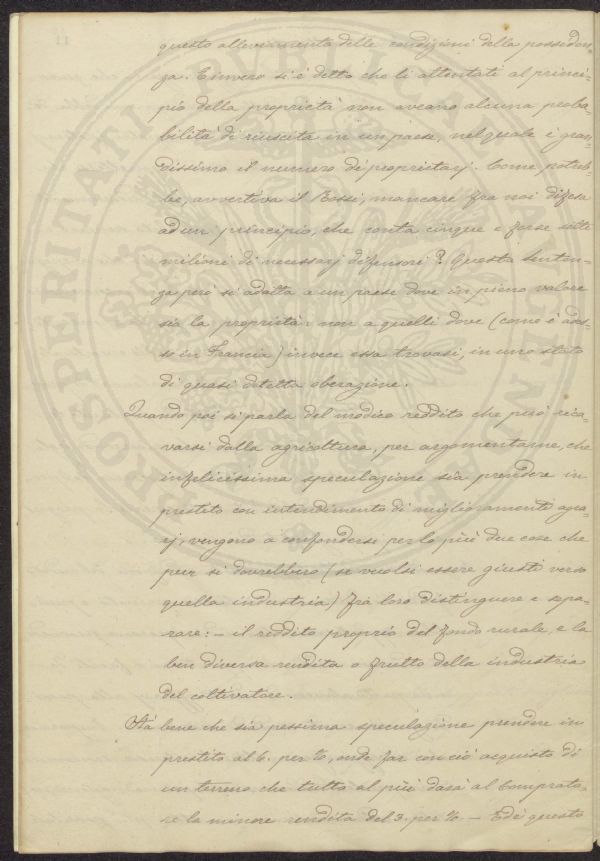 questo alleviamento delle condizioni della possiden-
za. Einvero si è detto che li attentati al princi-
pio della proprietà non aveano alcuna proba-
bilità di riuscita in un paese, nel quale è gran-
dissimo il numero di proprietarj. Come potreb-
be, avvertiva il Rossi, mancare fra noi difesa
ad un principio, che conta cinque e forse sette
milioni di necessarj difensori? Questa senten-
za però si adatta a un paese dove in pieno valore
sia la proprietà: non a quelli dove (come è ades-
so in Francia) invece essa trovasi, in uno stato
di quasi oberazione.
Quando poi si parla del modico reddito che può rica-
varsi dalla agricoltura, per argomentarne, che
infelicissima speculazione sia prendere in
prestito con intendimento di miglioramenti agra-
rj, vengono a confondersi per lo più due cose che
pur si dovrebbero (se vuolsi essere giusti verso
quella industria) fra loro distinguere e sepa-
rare: — il reddito proprio del fondo rurale, e la
ben diversa rendita o frutto della industria
del coltivatore.
Stà bene che sia pessima speculazione prendere in
prestito al 6. per %, onde far con ciò acquisto di
un terreno, che tutto al più darà al Comprato-
re la minore rendita del 3. per % — Ed è questo
PROSPERITATI PUBLICAE AUGENDAE